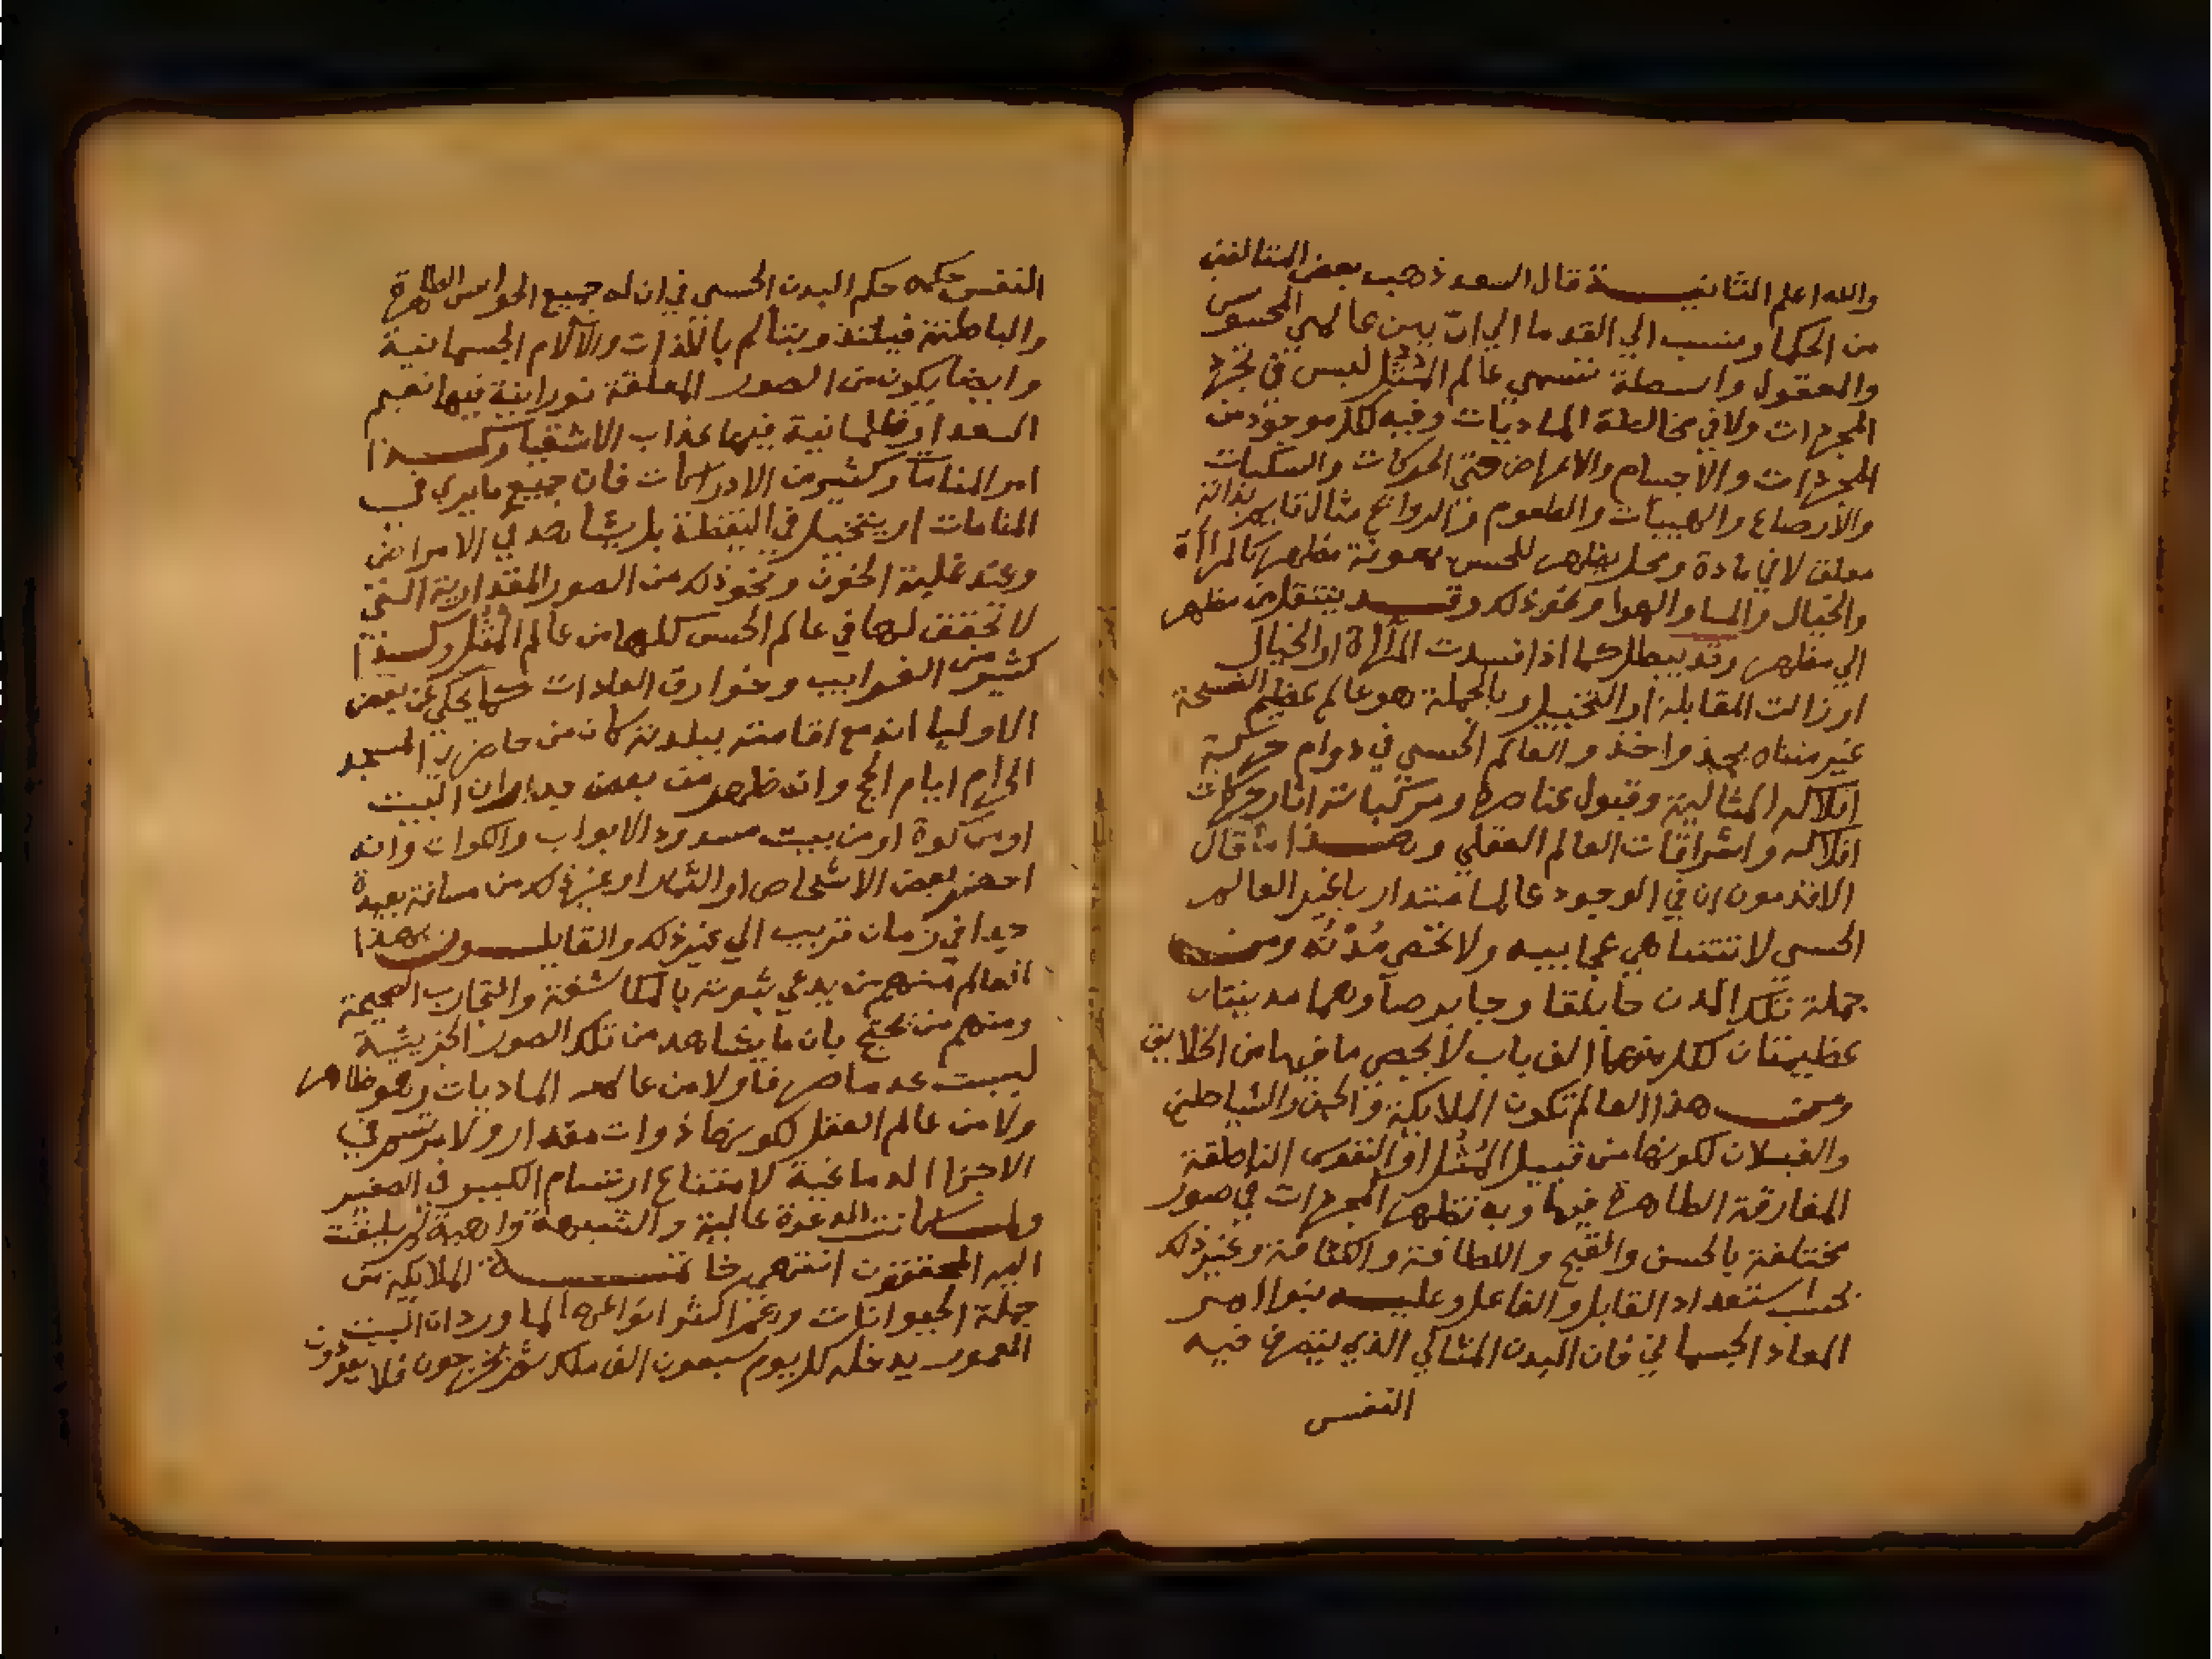 والله اعلم الثانيــــة قال السعد ذهب بعض المتالهين
من الحكما ونسب الي القدما الي ان بين عالمي المحسوس
والمعقول واسطة تسمي عالم المُثُل ليس في تجرد
المجردات ولا في مخالطة الماديات وفيه لكل موجود من
المجردات والاجسام والاعراض حتي الحركات والسكنات
والاوضاع والهيئات والطعوم والروائح مثال قايم بذاته
معلق لا في مادة ومحل يظهر للحس بمعونة مظهر كالمرآة
والخيال والما والهوا ونحو ذلك وقــد ينتقل من مظهر
الي مظهر وقد يبطل كما اذا فسدت المرآة او الخيال
او زالت المقابلة او التخييل وبالجملة هو عالم عظيم الفسحة
غير متناه يحذ واحذ والعالم الحسي في دوام حركة
افلاكه المثالية وقبول عناصره ومركباته اثار حركات
افلاكه واشراقات العالم العقلي وهــذا ما قال
الاقدمون ان في الوجود عالما مقداريا غير العالم
الحسي لا تتناهي عجايبه ولا تحصي مُدُنُه ومنــ
جملة تلك المدن جابلقا وجابرصا وهما مدينتان
عظيمتان لكل منهما الف باب لا يحصي ما فيها من الخلايق
ومنــ هذا العالم تكون الملايكة والجن والشياطين
والغيلان لكونها من قبيل المُثُل او النفوس الناطقة
المفارقة الظاهرة فيها وبه تظهر المجردات في صور
مختلفة بالحسن والقبح واللطافة والكثافة وغير ذلك
بحسب استعداد القابل والفاعل وعليــه بنوا امر
المعاد الجسماني فان البدن المثالي الذي يتصرف فيه
النفس
النفس حكمه حكم البدن الحسي في ان له جميع الحواس الظاهرة
والباطنة فيلتذ ويتألم باللذات والآلام الجسمانية
وايضا يكون من الصور المعلقة نورانية فيها نعيم
السعدا وظلمانية فيها عذاب الاشقيا وكــذا
امر المنامات وكثير من الادراكات فان جميع ما يري في
المنامات او يتخيل في اليقظة بل يشاهد في الامراض
وعند غلبة الخوف ونحو ذلك من الصور المقدارية التي
لا تحقق لها في عالم الحس كلها من عالم المُثُل وكــذا
كثير من الغرايب وخوارق العادات كما يحكي عن بعض
الاوليا انه مع اقامته ببلدته كان من حاضري المسجد
الحرام ايام الحج وانه ظهر من بعض جدران البيت
او من كوة او من بيت مسدود الابواب والكوات وانه
احضر بعض الاشخاص او الثمار او غير ذلك من مسافة بعيدة
جدا في زمان قريب الي غير ذلك والقايلــون بهذا
العالم منهم من يدعي ثبوته بالمكاشفة والتجارب الصحيحة
ومنهم من يحتج بان ما يشاهد من تلك الصور الجزيئية
ليست عدما صرفا ولا من عالم الماديات وهو ظاهر
ولا من عالم العقل لكونها ذوات مقدار ولا مرتسم في
الاجزا الدماغية لامتناع ارتسام الكبير في الصغير
ولمــا كانت الدعوة عالية والشبهة واهية لم يلتفت
اليه المحققون انتهي خاتمــــة الملايكة من
جملة الحيوانات وهم اكثر انواعها لما ورد ان البيت
المعمور يدخله كل يوم سبعون الف ملك ثم يخرجون فلا يعودون